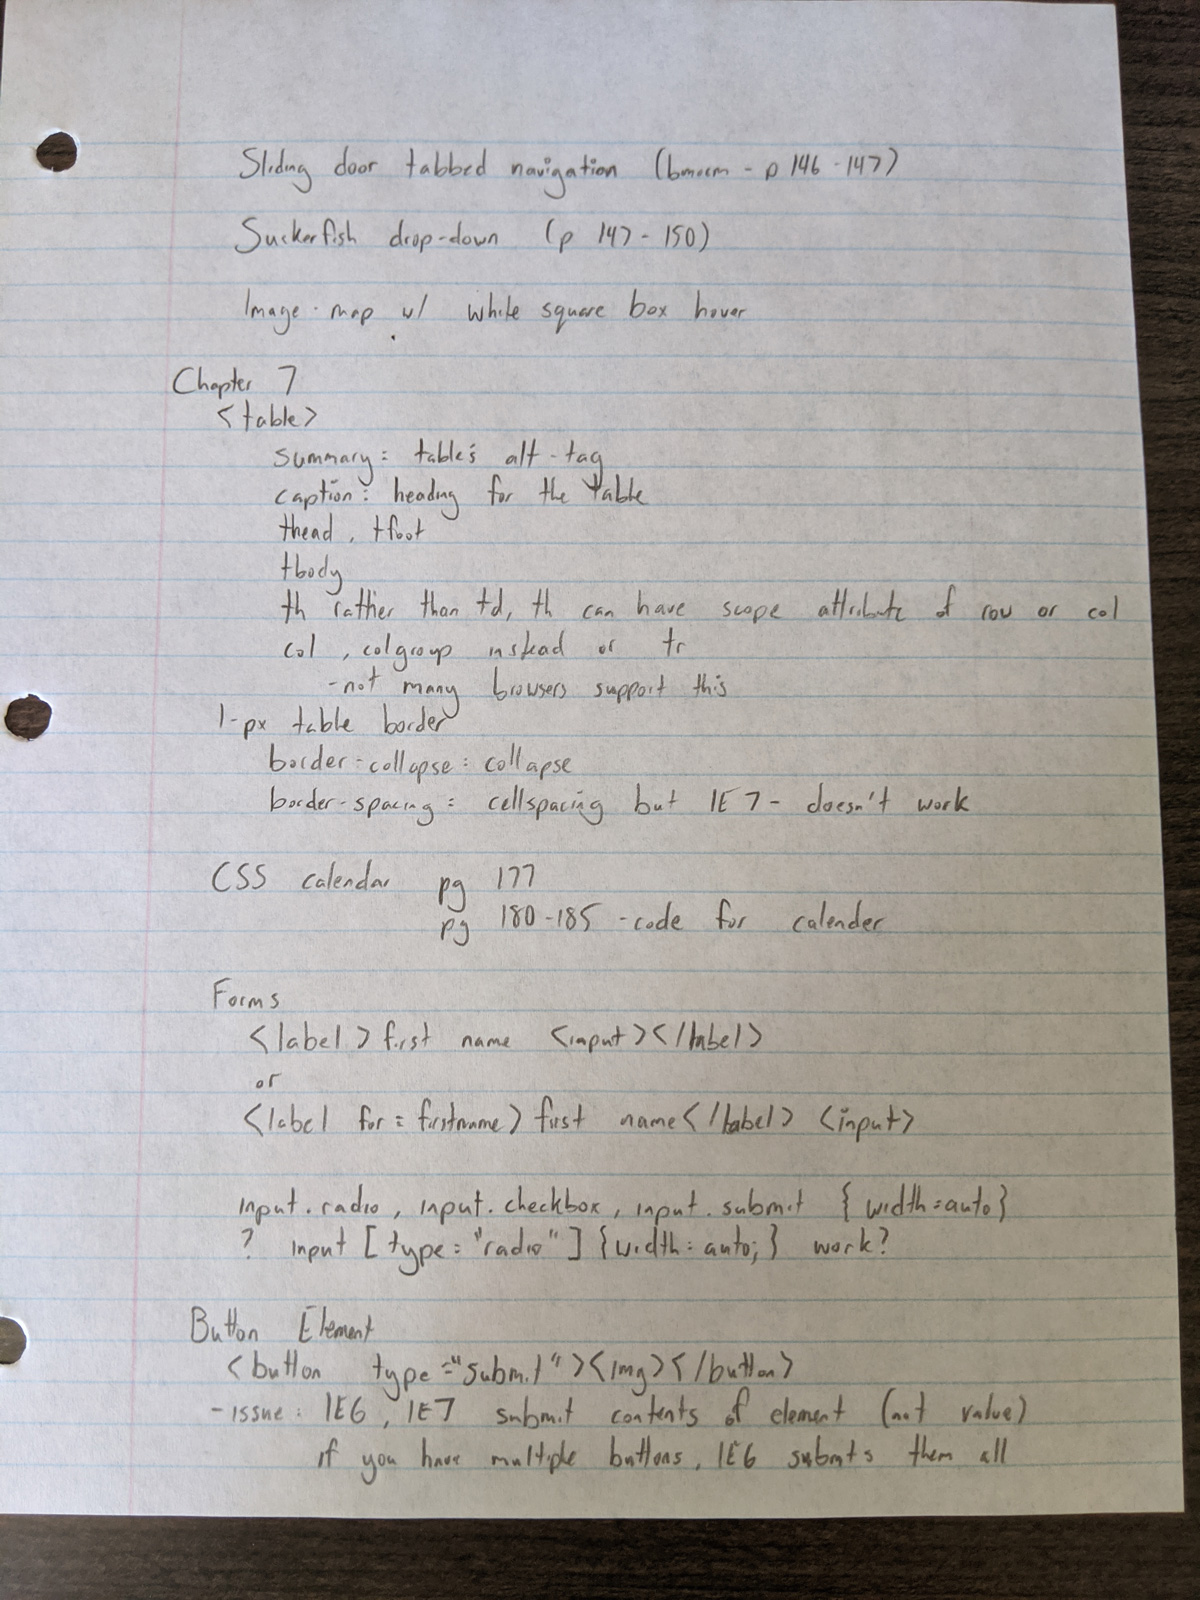 Sliding door tabbed navigation (bmocm - p 146-147)
Suckerfish drop-down (p 147-150)
Image-map w/ white square box hover
Chapter 7
<table>
summary: table's alt-tag
caption: heading for the table
thead, tfoot
tbody
th rather than td, th can have scope attribute of row or col
col, colgroup instead or tr
-not many browsers support this
1-px table border
border-collapse: collapse
border-spacing: cellspacing but IE7- doesn't work
CSS calendar pg 177
pg 180-185 -code for calender
Forms
<label>first name <input></label>
or
<label for=firstname>first name</label> <input>
input.radio, input.checkbox, input.submit {width:auto}
? input [type="radio"] {width: auto;} work?
Button Element
<button type="submit"><img></button>
-issue: IE6, IE7 submit contents of element (not value)
if you have multiple buttons, IE6 submits them all